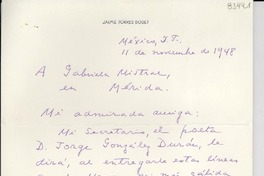 83441
JAIME TORRES BODET
México, D.F.
11 de noviembre de 1948
A Gabriela Mistral,
en Mérida.
Mi admirada amiga:
Mi Secretario, el poeta
D. Jorge González Durán, le
dirá, al entregarle estas líneas
mi más cálida